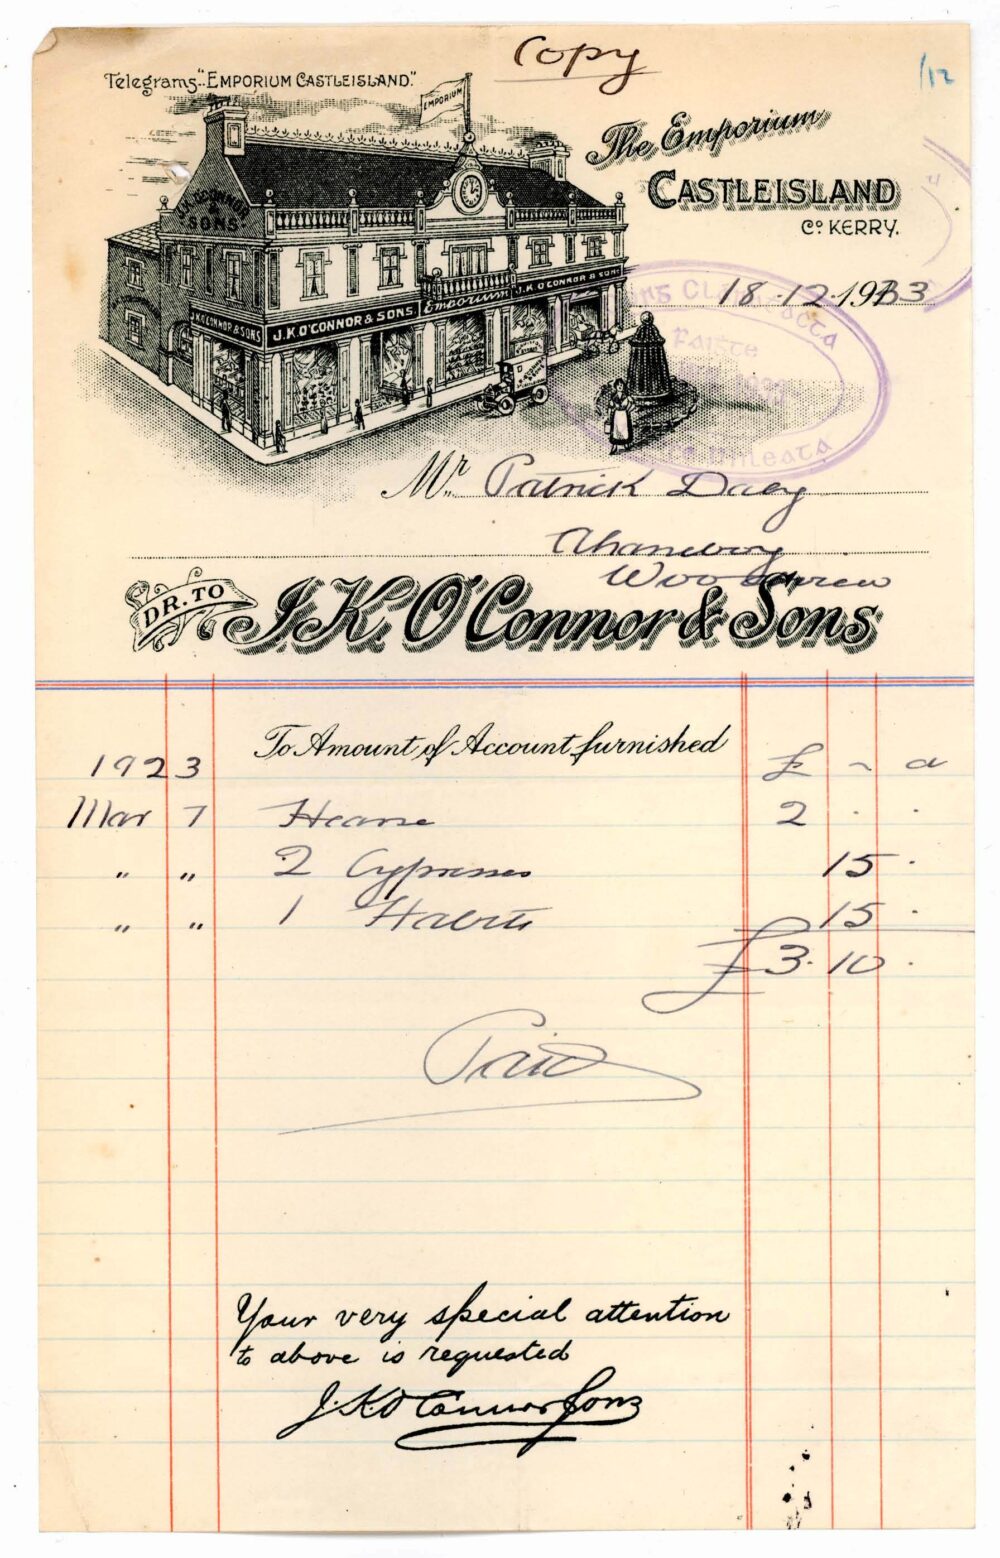 Copy
/12
Telegrams "EMPORIUM CASTLEISLAND."
EMPORIUM
The Emporium
CASTLEISLAND
Co. KERRY.
J.K. O'CONNOR
& SONS.
18-12-1933
J.K.O'CONNOR & SONS
J.K.O'CONNOR & SONS.
Emporium
J.K.O'CONNOR & SONS
Mr. Patrick Daly
DR. TO
J.K. O'Connor & Sons
To Amount of Account furnished
1923 £ " d
Mar 7 Hearse 2 . .
" " 2 Cypresses 15 .
" " 1 Habits 15 .
£3. 10 .
Paid
Your very special attention
to above is requested
J.K.O'Connor & Sons